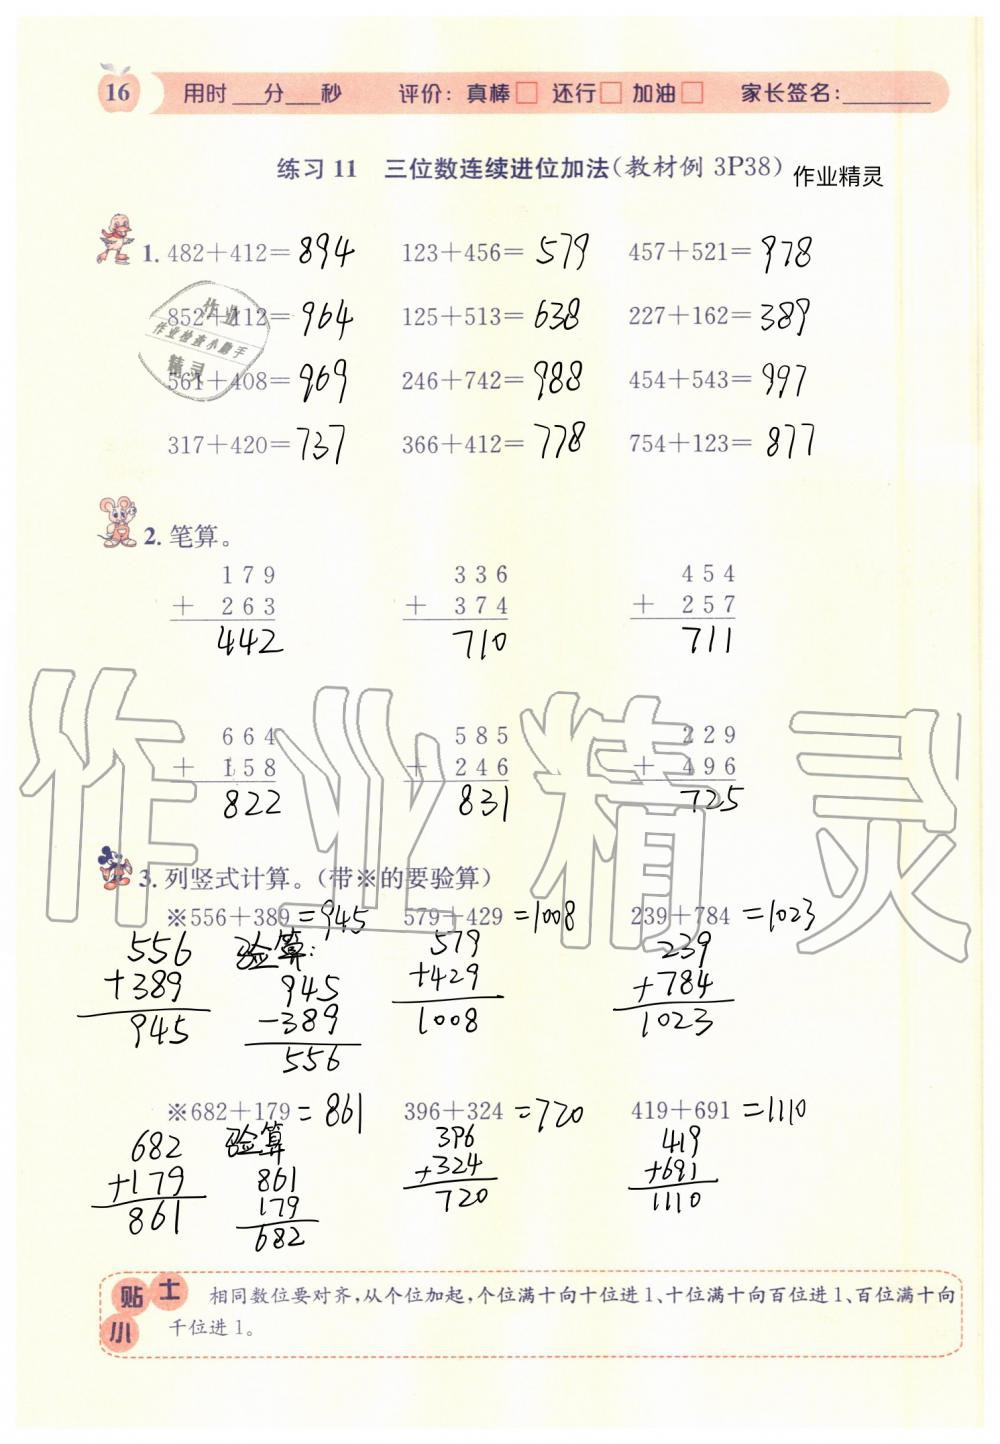 16 用时___分___秒 评价：真棒□ 还行□ 加油□ 家长签名：________
练习 11 三位数连续进位加法(教材例 3P38) 作业精灵
1. 482+412=894 123+456=579 457+521=978
852+112=964 125+513=638 227+162=389
561+408=969 246+742=988 454+543=997
317+420=737 366+412=778 754+123=877
作业
作业检查小助手
精灵
2. 笔算。
179 336 454
+ 263 + 374 + 257
442 710 711
664 585 229
+ 158 + 246 + 496
822 831 725
作业精灵
3. 列竖式计算。(带※的要验算)
※556+389=945 579+429=1008 239+784=1023
556 验算: 579 239
+389 945 +429 +784
945 -389 1008 1023
556
※682+179=861 396+324=720 419+691=1110
682 验算 396 419
+179 861 +324 +691
861 179 720 1110
682
小贴士
相同数位要对齐，从个位加起，个位满十向十位进1、十位满十向百位进1、百位满十向
千位进1。